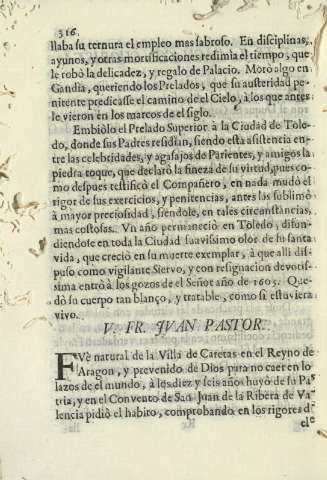 316.
llaba su ternura el empleo mas sabroso. En disciplinas,
ayunos, y otras mortificaciones redimia el tiempo, que
le robò la delicadez, y regalo de Palacio. Morò algo en
Gandia, queriendo los Prelados, que su austeridad pe-
nitente predicasse el camino de el Cielo, à los que antes
le vieron en los marcos de el siglo.
Embiòlo el Prelado Superior à la Ciudad de Tole-
do, donde sus Padres residian, siendo esta asistencia en-
tre las celebridades, y agasajos de Parientes, y amigos la
piedra toque, que declarò la fineza de su virtud, pues co-
mo despues testificò el Compañero, en nada mudò el
rigor de sus exercicios, y penitencias, antes las sublimò
à mayor preciosidad, siendole, en tales circunstancias,
mas costosas. Vn año permaneciò en Toledo, difun-
diendose en toda la Ciudad suavissimo olor de su santa
vida, que creciò en su muerte exemplar, à que alli dis-
puso como vigilante Siervo, y con resignacion devotis-
sima entrò à los gozos de el Señor año de 1605. Que-
dò su cuerpo tan blanco, y tratable, como si estuviera
vivo.
V. FR. JVAN PASTOR.
FVè natural de la Villa de Caretas en el Reyno de
Aragon, y prevenido de Dios para no caer en lo
lazos de el mundo, à los diez y seis años huyò de su Pa-
tria, y en el Convento de San Juan de la Ribera de Va-
lencia pidiò el habito, comprobando en los rigores d
ele